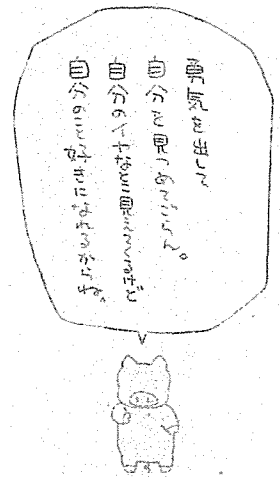 勇気を出して
自分を見つめてごらん。
自分のイヤなとこ見えてくるけど
自分のこと好きになれるからね。